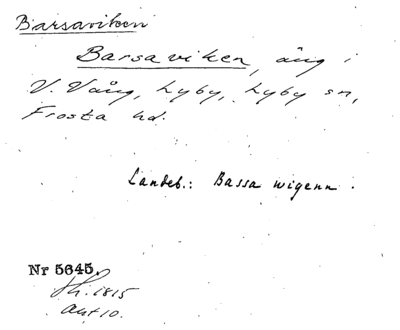 Barsaviken
Barsaviken, äng i
V. Vång, Lyby, Lyby sn,
Frosta hd.
Landeb.: Bassa wigenn.
Nr 5645.
Sk. 1815
Akt 10.